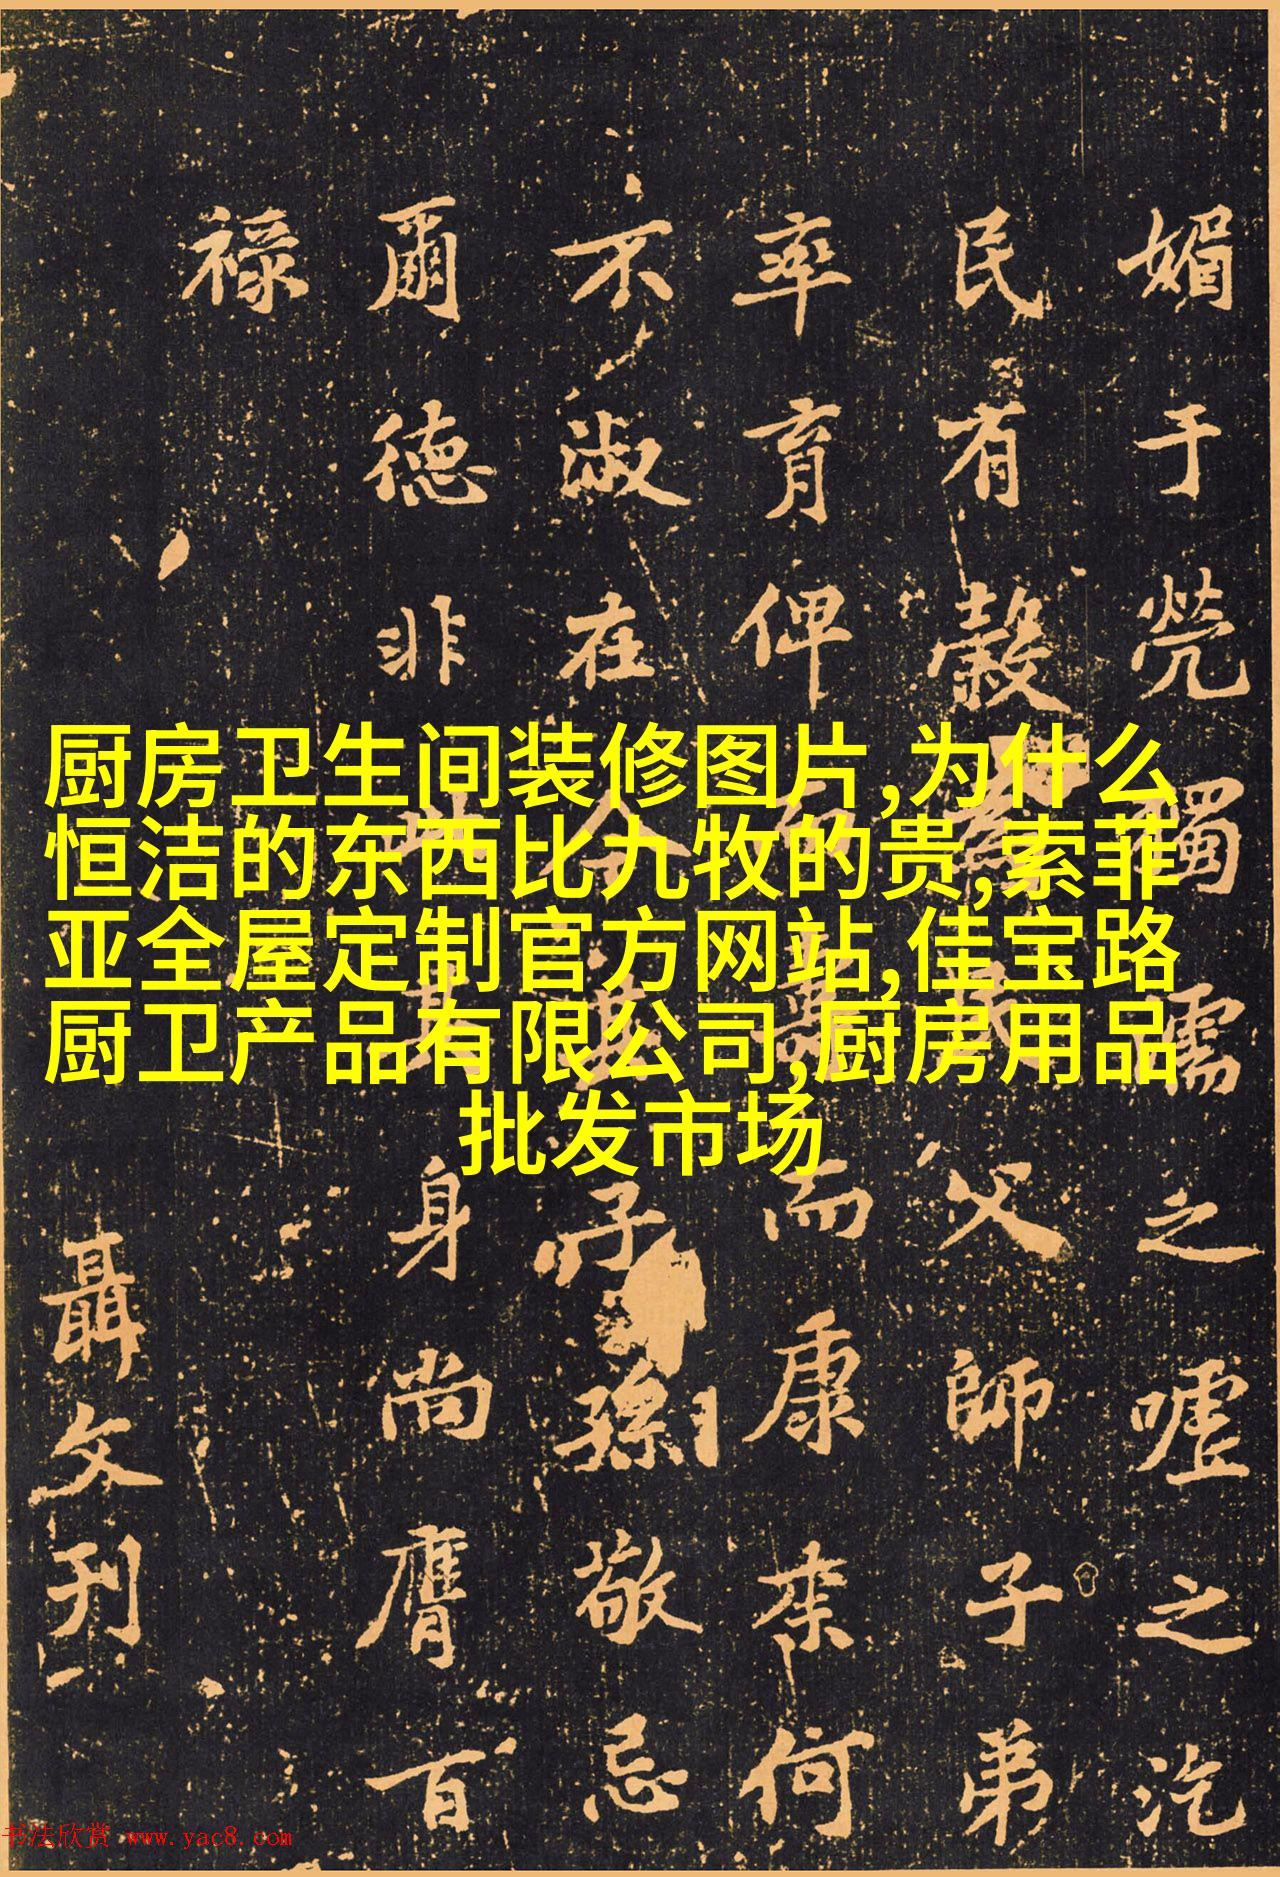 厨房卫生间装修图片,为什么
恒洁的东西比九牧的贵,索菲
亚全屋定制官方网站,佳宝路
厨卫产品有限公司,厨房用品
批发市场
媚于煢獨濡之嘘之汔
民有穀父師子弟
率育俾而康来何
不淑在今子孫敬忌
爾德非其身尚膺百
禄
聶文刊
书法欣赏 www.yac8.com